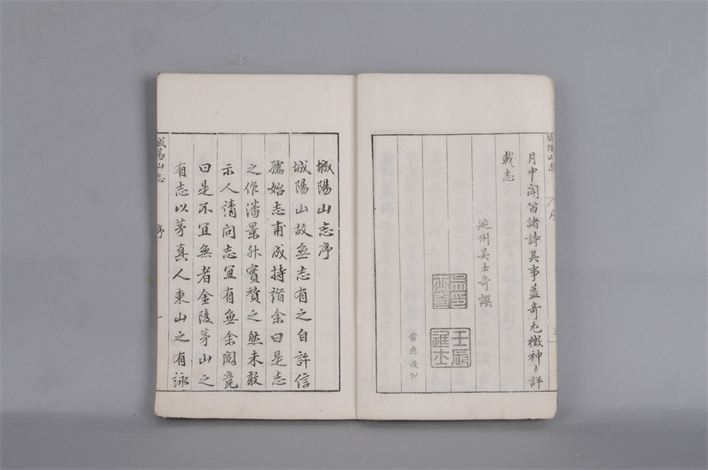 城陽山志 序
月中聞笛諸詩其事蓋奇尤徵神〻詳
載志
延州吳士奇譔
壬辰進士
城陽山志序
城陽山故無志有之自許信
孺始志甫成持詣余曰是志
之作潘景升實贊之然未敢
示人請問志宜有無余閱竟
曰是不宜無者金陵茅山之
有志以茅真人東山之有詠
城陽山志 序 一